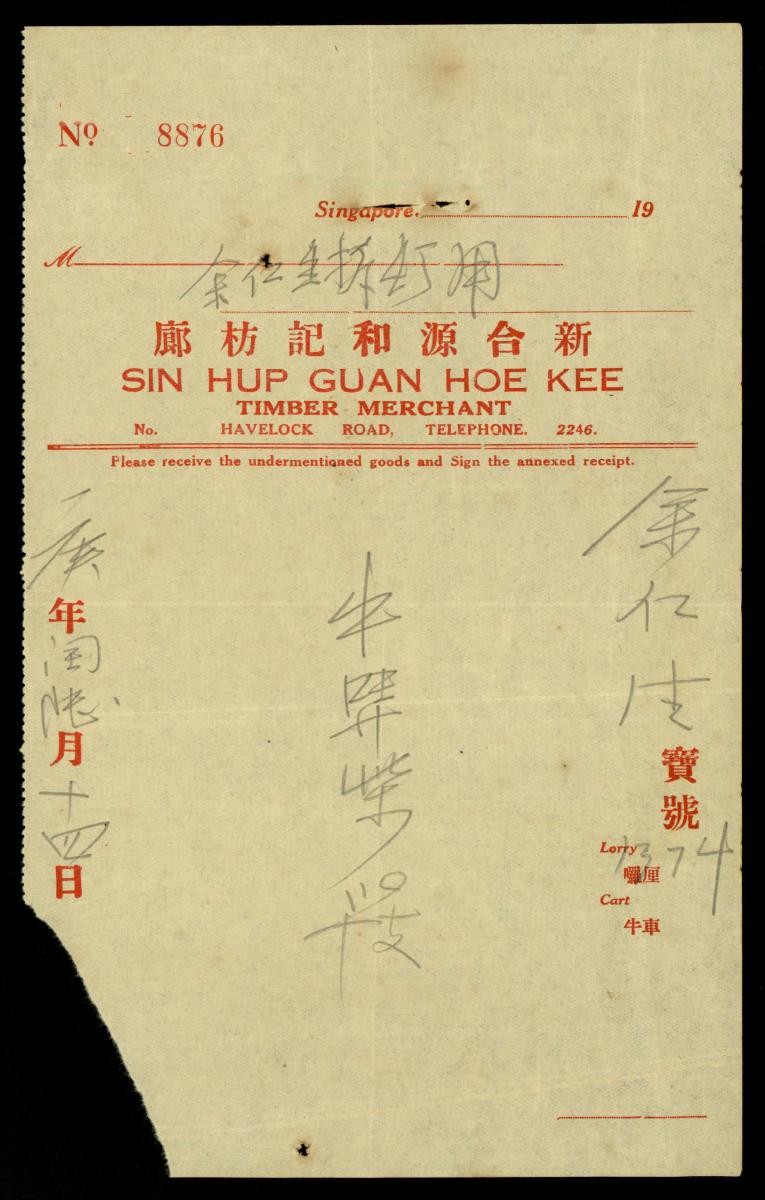 No 8876
Singapore. 19
M 余仁生
新合源和記枋廊
SIN HUP GUAN HOE KEE
TIMBER MERCHANT
No. HAVELOCK ROAD, TELEPHONE. 2246.
Please receive the undermentioned goods and Sign the annexed receipt.
余仁生寶號
Lorry 1374
囉厘
Cart
牛車
柴
庚年閏月十四日